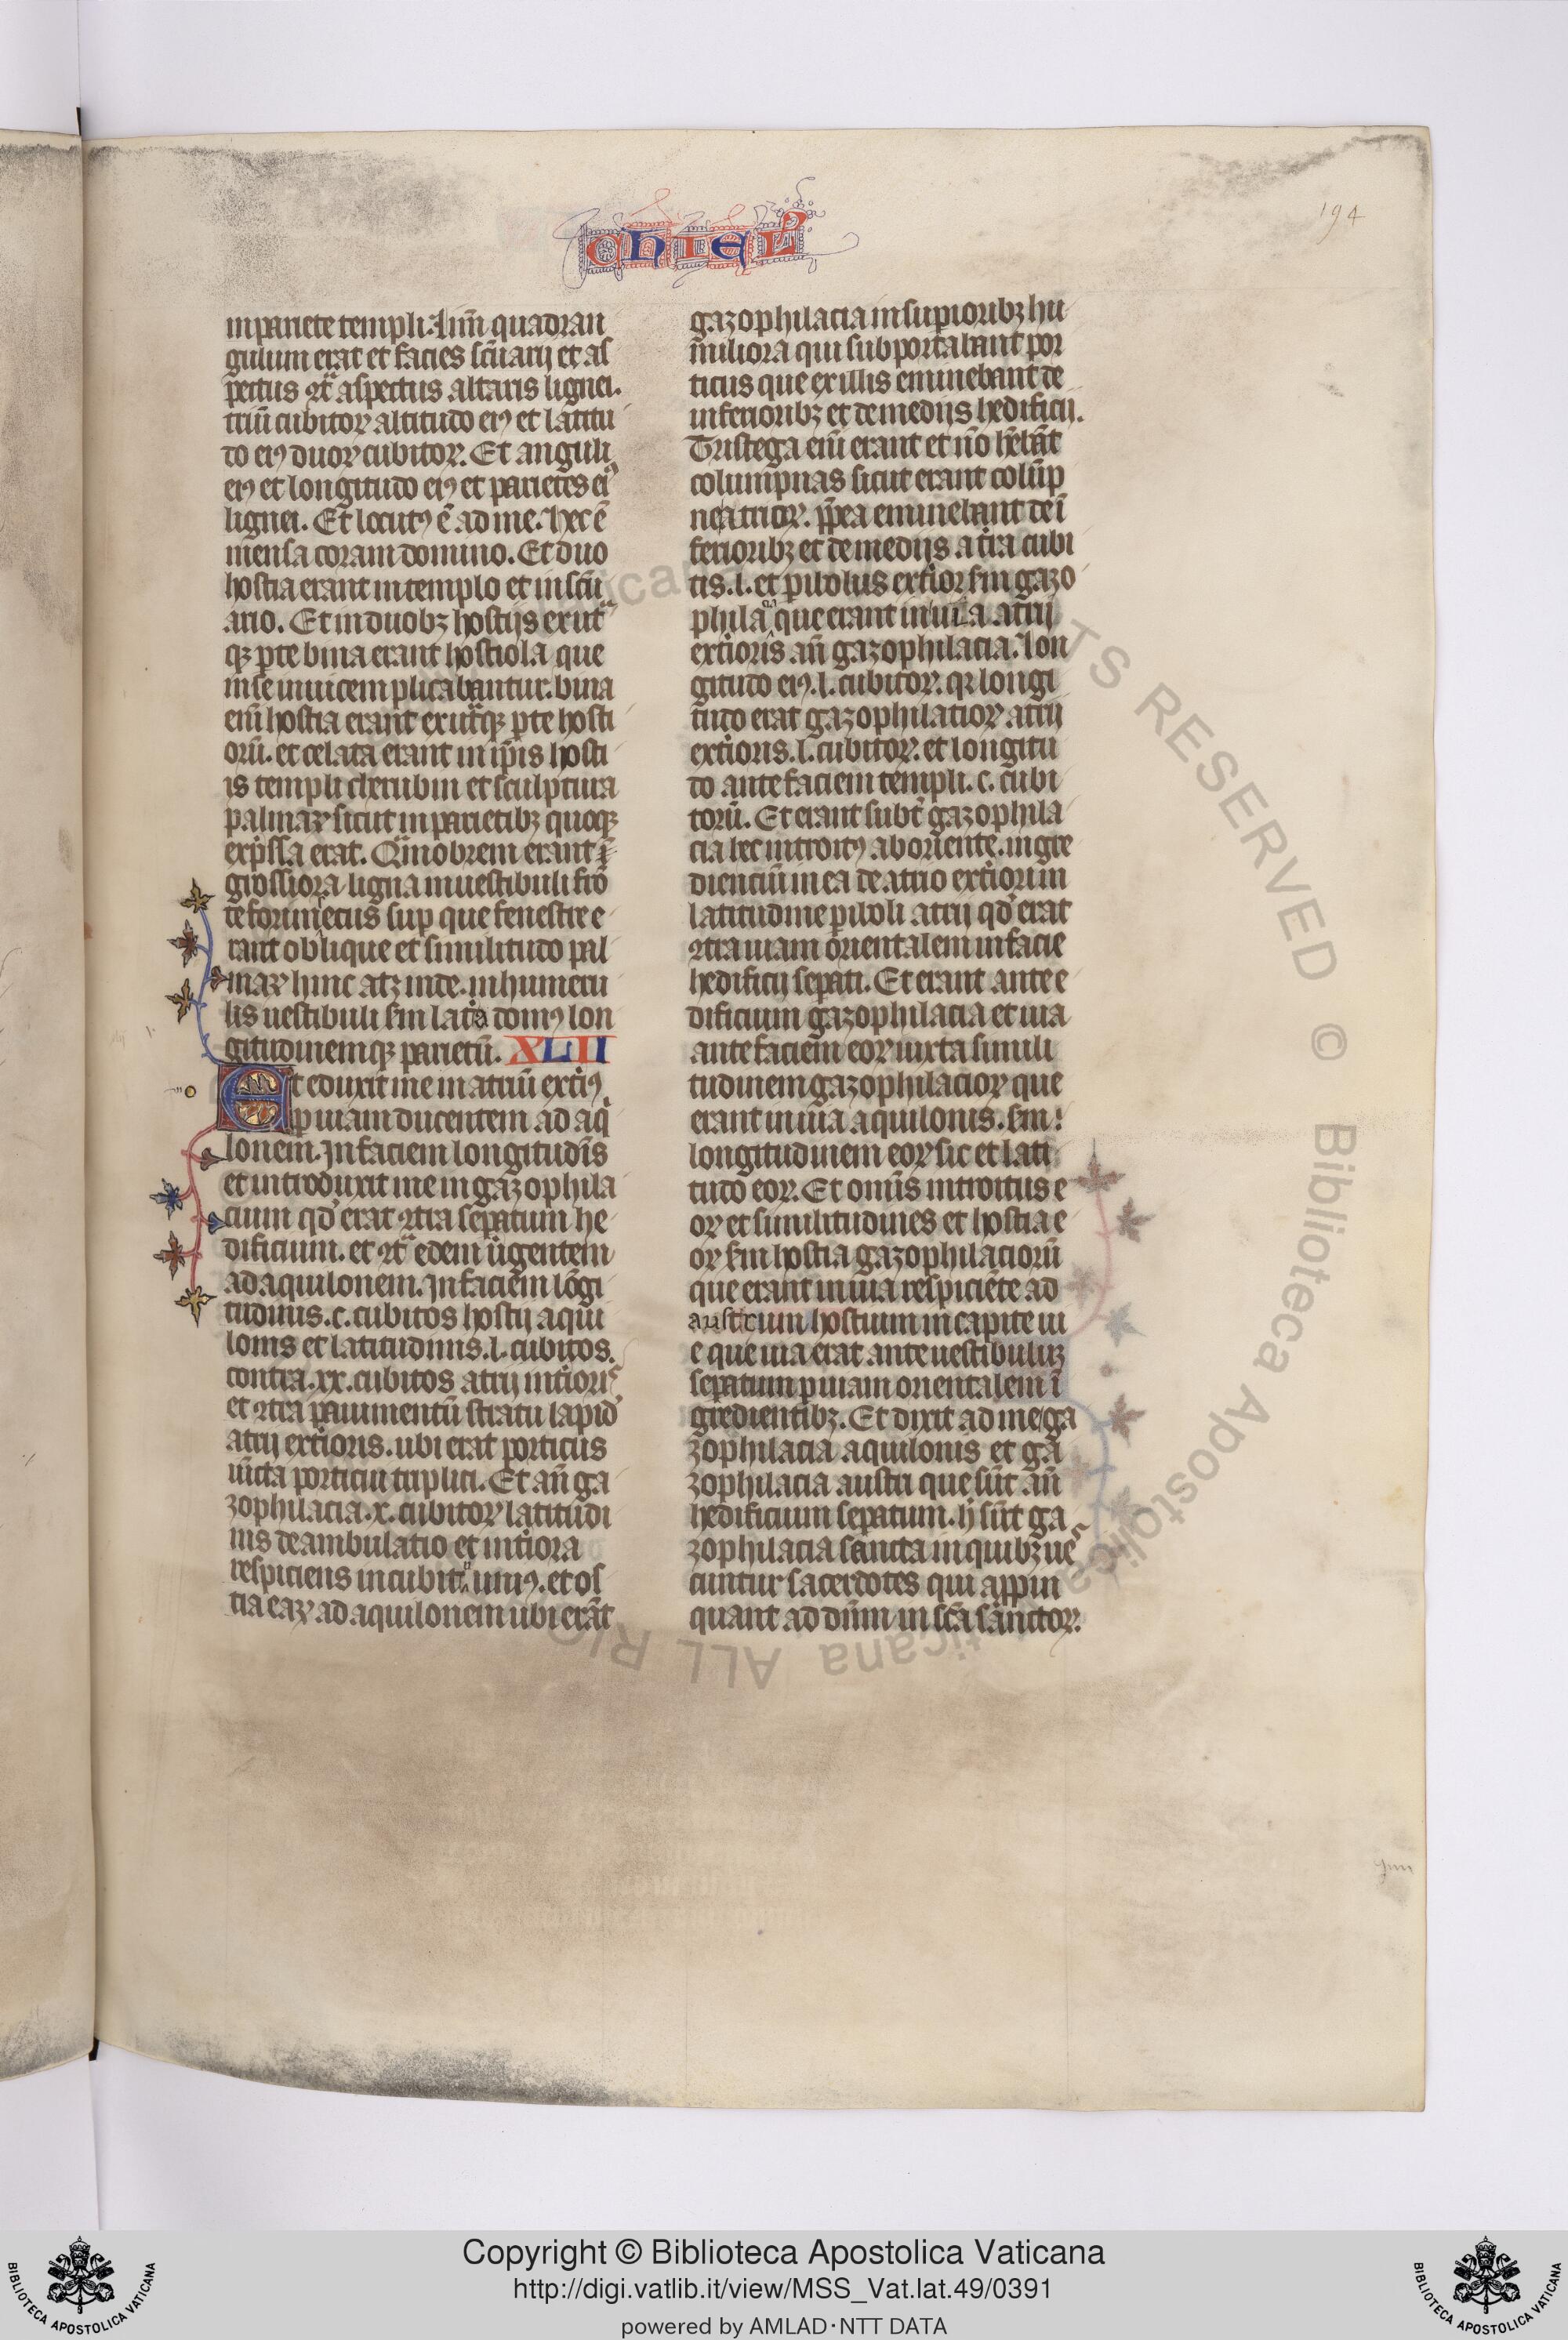 194
CHIEL
in pariete templi. Lim̄ quadran
gulum erat et facies sc̄uarij et as
pectus ꝯtͣ aspectus altaris lignei.
triū cubitoꝝ altitudo eiꝰ et latitu
do eiꝰ duoꝝ cubitoꝝ. Et anguli
eiꝰ et longitudo eiꝰ et parietes eiꝰ
lignei. Et locutꝰ ē ad me. hec ē
mensa coram domino. Et duo
hostia erant in templo et in sc̄u
ario. Et in duobꝫ hostijs ex utͣ
qꝫ ꝑte bina erant hostiola que
in se inuicem plicabantur. bina
eni᷑ hostia erant ex utͣqꝫ ꝑte hosti
orū. et celata erant in ip̄is hosti
is templi cherubin et sculptura
palmaꝝ sicut in parietibꝫ quoqꝫ
exp̄ssa erat. Qͣmobrem erant ⁊
grossiora ligna in uestibuli frō
te forinsecus suꝑ que fenestre e
rant oblique et similitudo pal
maꝝ hinc atꝫ inde. in humeru
lis uestibuli sm̄ latͣa domꝰ lon
gitudinemqꝫ parietū. XLII
Et eduxit me in atriū extiꝰ
ꝑ uiam ducentem ad aqͥ
lonem. In faciem longitudīs
et introduxit me in gazophila
cium qd̓ erat ꝯtra seꝑatum he
dificium. et ꝯtͣ edem ūgentem
ad aquilonem. In faciem lōgi
tudinis. c. cubitos hostij aqui
lonis et latitudinis. l. cubitos.
contra. xx. cubitos atrij int̓ioris
et ꝯtra pauimentū stratū lapid̓
atrij ext̓ioris. ubi erat porticus
iūcta porticui triplici. Et an̄ ga
zophilacia. x. cubitoꝝ latitudi
nis deambulatio et int̓iora
respiciens in cubitͣ unīꝰ. et os
tia eaꝝ ad aquilonem ubi erāt
gazophilacia in suꝑioribꝫ hu
miliora qui subportabant por
ticus que ex illis eminebant de
inferioribꝫ et de medijs hedificij.
Tristega eni᷑ erant et nō hēbāt
columpnas sicut erant colūp
ne atrioꝝ. ꝓpea eminebant de ī
ferioribꝫ et de medijs a t̓ra cubi
tis. l. et ꝑibolus ext̓ior sm̄ gazo
philaͨ que erant in uia atrij
ext̓ioris an̄ gazophilacia. Lon
gitudo eiꝰ. l. cubitoꝝ. qꝛ longi
tudo erat gazophilacioꝝ atrij
ext̓ioris. l. cubitoꝝ. et longitu
do ante faciem templi. c. cubi
torū. Et erant subt̓ gazophila
cia hec introitꝰ ab oriente. ingre
dienciū in ea de atrio ext̓iori in
latitudine ꝑiboli atrij qd̓ erat
ꝯtra uiam orientalem in facie
hedificij seꝑati. Et erant ante e
dificium gazophilacia et uia
ante faciem eoꝝ iuxta simili
tudinem gazophilacioꝝ que
erant in uia aquilonis. sm̄
longitudinem eoꝝ sic et lati
tudo eoꝝ. Et omīs introitus e
oꝝ et similitudines et hostia e
oꝝ sm̄ hostia gazophilaciorū
que erant in uia respiciēte ad
austrum hostium in capite ui
e que uia erat ante uestibuluꝫ
seꝑatum ꝑ uiam orientalem ī
gredientibꝫ. Et dixit ad me ga
zophilacia aquilonis et ga
zophilacia austri que sūt an̄
hedificium seꝑatum. h̓ sūt ga
zophilacia sancta in quibꝫ ues
cuntur sacerdotes qui appin
quant ad dn̄m in sc̄a sanctoꝝ.
ALL RIGHTS RESERVED © Biblioteca Apostolica Vaticana
Copyright © Biblioteca Apostolica Vaticana
http://digi.vatlib.it/view/MSS_Vat.lat.49/0391
powered by AMLAD·NTT DATA
BIBLIOTECA APOSTOLICA VATICANA
BIBLIOTECA APOSTOLICA VATICANA